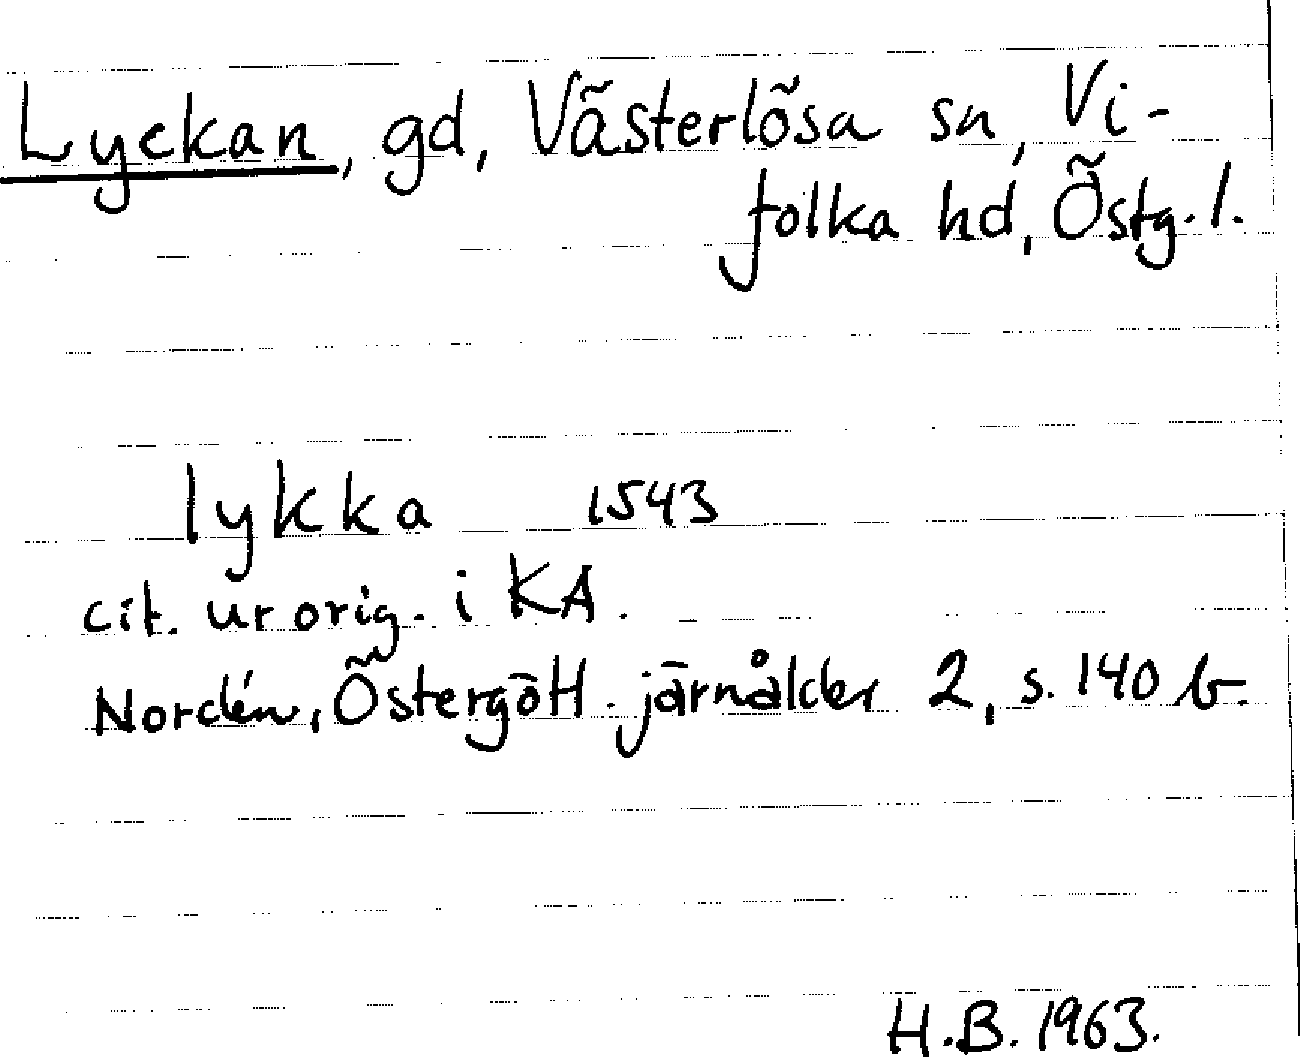 Lyckan, gd, Västerlösa sn, Vi-
folka hd, Östg. l.
lykka 1543
cit. ur orig. i KA.
Nordén, Östergötl. järnålder 2, s. 140 b.
H.B. 1963.